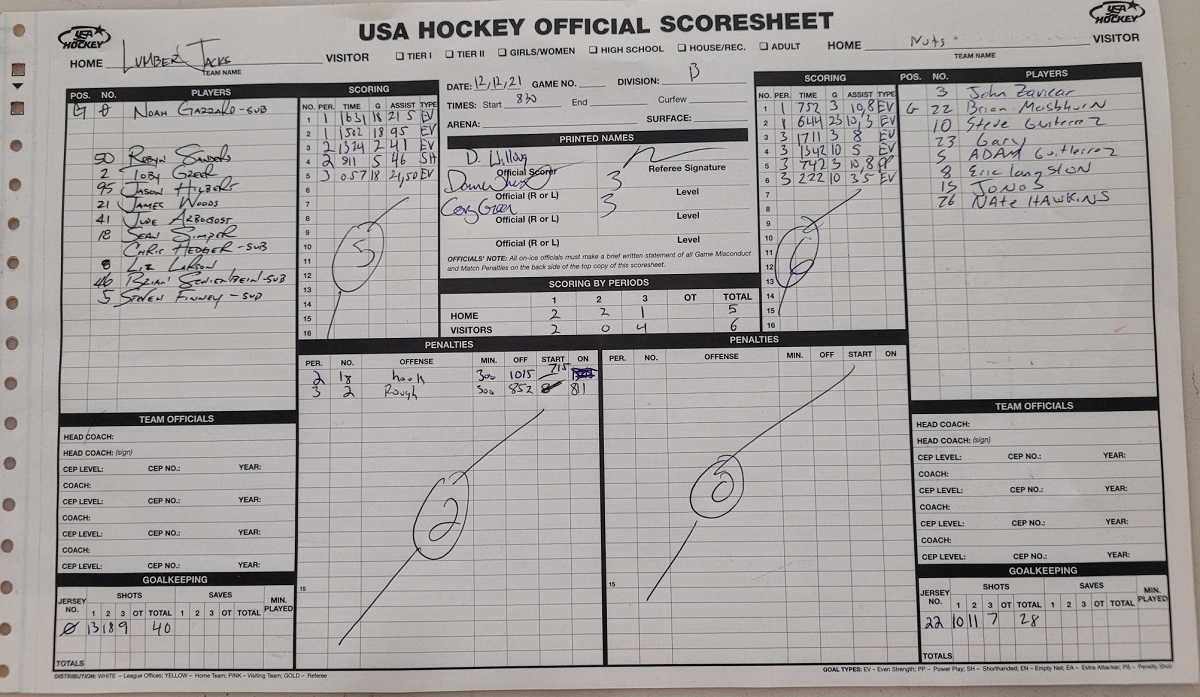 USA HOCKEY OFFICIAL SCORESHEET
USA HOCKEY
USA HOCKEY
HOME LUMBER JACKS VISITOR
TEAM NAME
☐ TIER I ☐ TIER II ☐ GIRLS/WOMEN ☐ HIGH SCHOOL ☐ HOUSE/REC. ☐ ADULT
HOME Nuts VISITOR
TEAM NAME
POS. NO. PLAYERS
G 0 NOAH GAZZALO-SUB
50 ROBYN SANDERS
2 TOBY GREER
95 JASON HILBERT
21 JAMES WOODS
41 JUDE ARBOGOST
18 SEAN SIMPER
CHRIS HEDGER-SUB
8 LIZ LARSON
46 BRIAN -SUB
5 STEVEN FINNEY-SUB
SCORING
NO. PER. TIME G ASSIST TYPE
1 1 1631 18 21 5 EV
2 1 1502 18 95 EV
3 2 1324 2 41 EV
4 2 911 5 46 SH
5 3 057 18 21,50 EV
6
7
8
9
10
11
12
13
14
15
16
5
DATE: 12/12/21 GAME NO. DIVISION: B
TIMES: Start 830 End Curfew
ARENA: SURFACE:
PRINTED NAMES
D.
Official Scorer
Referee Signature
3
Official (R or L) Level
Cory Green 3
Official (R or L) Level
Official (R or L) Level
OFFICIALS' NOTE: All on-ice officials must make a brief written statement of all Game Misconduct
and Match Penalties on the back side of the top copy of this scoresheet.
SCORING BY PERIODS
1 2 3 OT TOTAL
HOME 2 2 1 5
VISITORS 2 0 4 6
SCORING
NO. PER. TIME G ASSIST TYPE
1 1 752 3 10,8 EV
2 1 644 23 10,3 EV
3 3 1711 3 8 EV
4 3 1342 10 5 EV
5 3 742 3 10,8 PP
6 3 222 10 3 5 EV
7
8
9
10
11
12
13
14
15
16
6
POS. NO. PLAYERS
3 John Zavicar
G 22 Brian Mashburn
10 Steve Gutierrez
23 Gary
5 ADAM Gutierrez
8 Eric Langston
15 JONOS
76 NAte HAWKINS
PENALTIES
PER. NO. OFFENSE MIN. OFF START ON
2 18 hook 300 1015 715
3 2 Rough 500 852 811
2
15
PENALTIES
PER. NO. OFFENSE MIN. OFF START ON
0
15
TEAM OFFICIALS
HEAD COACH:
HEAD COACH: (sign)
CEP LEVEL: CEP NO.: YEAR:
COACH:
CEP LEVEL: CEP NO.: YEAR:
COACH:
CEP LEVEL: CEP NO.: YEAR:
COACH:
CEP LEVEL: CEP NO.: YEAR:
GOALKEEPING
JERSEY NO. SHOTS SAVES MIN. PLAYED
1 2 3 OT TOTAL 1 2 3 OT TOTAL
0 13 18 9 40
TOTALS
TEAM OFFICIALS
HEAD COACH:
HEAD COACH: (sign)
CEP LEVEL: CEP NO.: YEAR:
COACH:
CEP LEVEL: CEP NO.: YEAR:
COACH:
CEP LEVEL: CEP NO.: YEAR:
COACH:
CEP LEVEL: CEP NO.: YEAR:
GOALKEEPING
JERSEY NO. SHOTS SAVES MIN. PLAYED
1 2 3 OT TOTAL 1 2 3 OT TOTAL
22 10 11 7 28
TOTALS
DISTRIBUTION: WHITE – League Offices; YELLOW – Home Team; PINK – Visiting Team; GOLD – Referee
GOAL TYPES: EV – Even Strength; PP – Power Play; SH – Shorthanded; EN – Empty Net; EA – Extra Attacker; PS – Penalty Shot